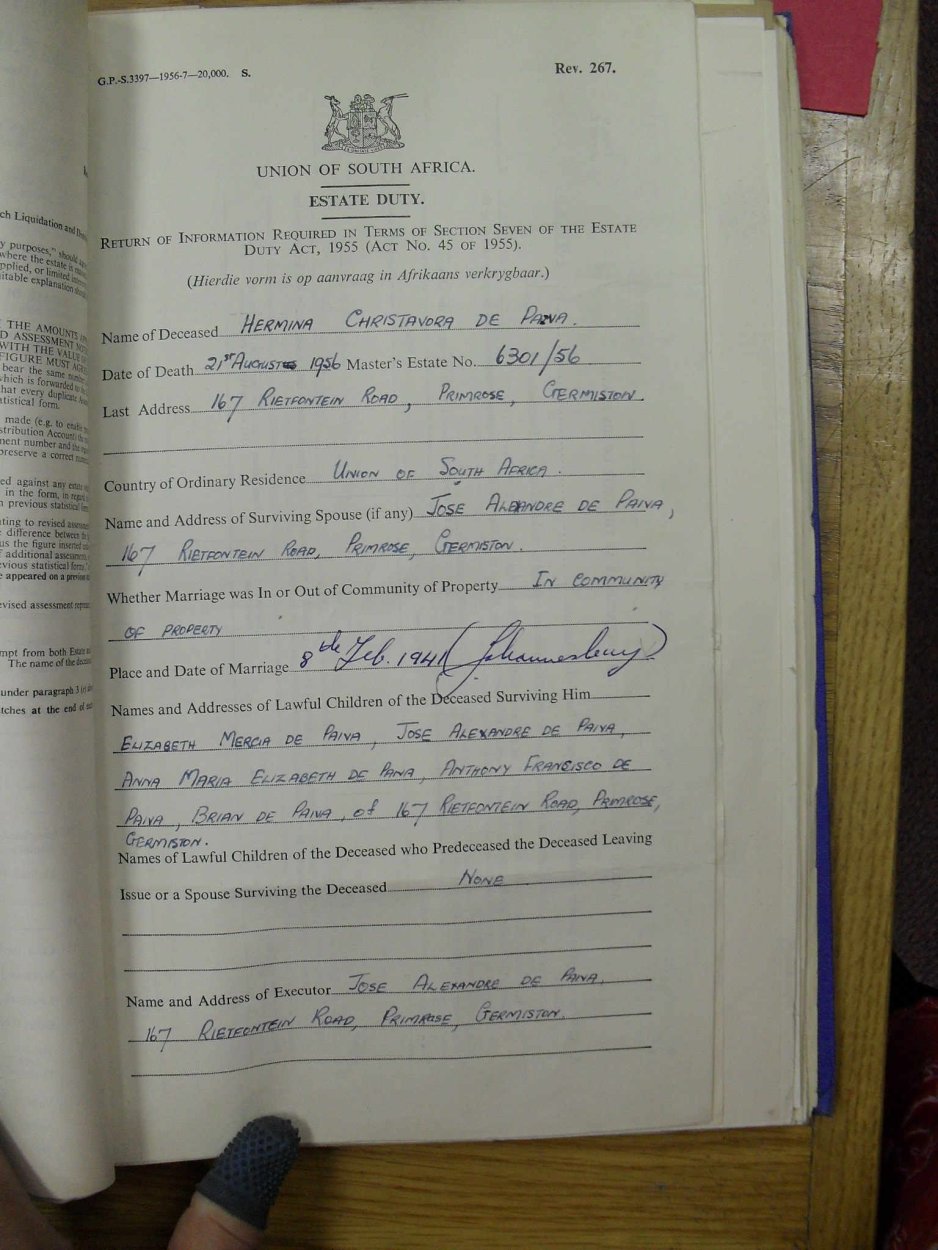 G.P.-S.3397—1956-7—20,000. S.
Rev. 267.
UNION OF SOUTH AFRICA.
ESTATE DUTY.
RETURN OF INFORMATION REQUIRED IN TERMS OF SECTION SEVEN OF THE ESTATE
DUTY ACT, 1955 (ACT NO. 45 OF 1955).
(Hierdie vorm is op aanvraag in Afrikaans verkrygbaar.)
Name of Deceased HERMINA CHRISTAVORA DE PAIVA.
Date of Death 21ST AUGUST 1956 Master's Estate No. 6301/56
Last Address 167 RIETFONTEIN ROAD, PRIMROSE, GERMISTON.
Country of Ordinary Residence UNION OF SOUTH AFRICA.
Name and Address of Surviving Spouse (if any) JOSE ALEXANDRE DE PAIVA,
167 RIETFONTEIN ROAD, PRIMROSE, GERMISTON.
Whether Marriage was In or Out of Community of Property IN COMMUNITY
OF PROPERTY
Place and Date of Marriage 8th Feb. 1941 (Johannesburg)
Names and Addresses of Lawful Children of the Deceased Surviving Him
ELIZABETH MERCIA DE PAIVA, JOSE ALEXANDRE DE PAIVA,
ANNA MARIA ELIZABETH DE PAIVA, ANTHONY FRANCISCO DE
PAIVA, BRIAN DE PAIVA, of 167 RIETFONTEIN ROAD, PRIMROSE,
GERMISTON.
Names of Lawful Children of the Deceased who Predeceased the Deceased Leaving
Issue or a Spouse Surviving the Deceased NONE
Name and Address of Executor JOSE ALEXANDRE DE PAIVA,
167 RIETFONTEIN ROAD, PRIMROSE, GERMISTON.
ch Liquidation and
y purposes," should
where the estate is
pplied, or limited
itable explanation
THE AMOUNTS
D ASSESSMENT
WITH THE VALUE
FIGURE MUST
bear the same number
which is forwarded to
hat every duplicate
tistical form.
made (e.g. to enable
stribution Account
ment number and the
preserve a correct
ed against any estate
in the form, in regard
n previous statistical
ting to revised assessment
difference between
us the figure inserted
f additional assessment,
evious statistical form."
e appeared on a previous
evised assessment
mpt from both Estate
The name of the
under paragraph 3
tches at the end of